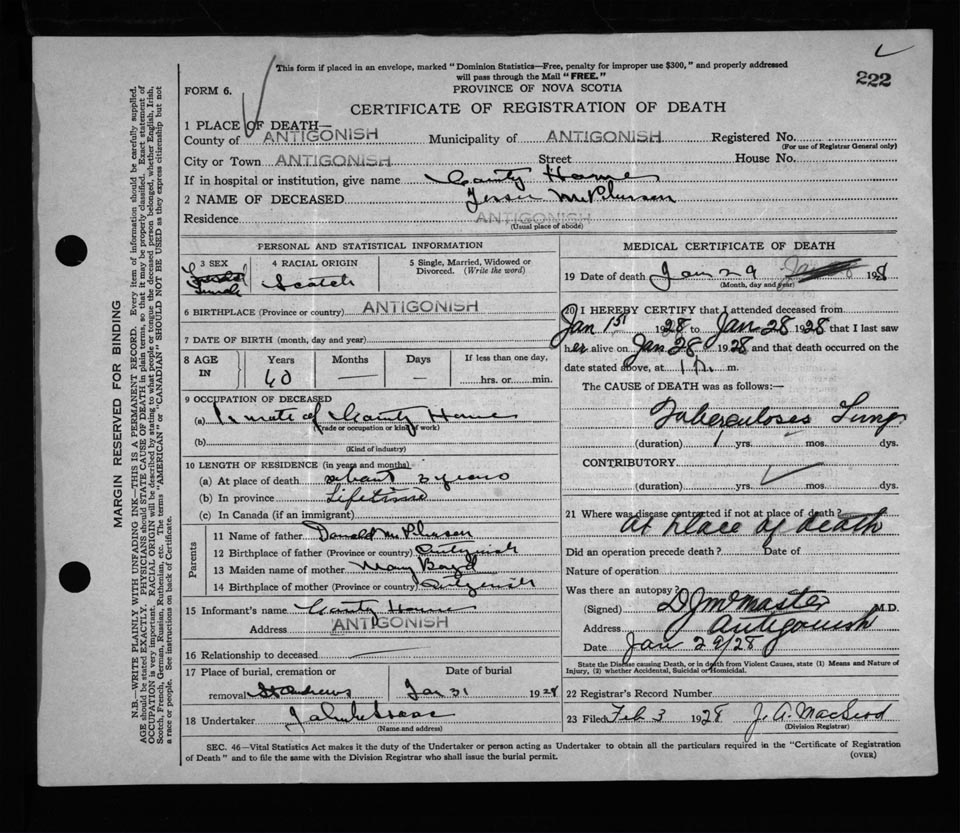 This form if placed in an envelope, marked "Dominion Statistics—Free, penalty for improper use $300," and properly addressed
will pass through the Mail "FREE."
222
FORM 6.
PROVINCE OF NOVA SCOTIA
CERTIFICATE OF REGISTRATION OF DEATH
1 PLACE OF DEATH—
County of ANTIGONISH Municipality of ANTIGONISH Registered No.
(For use of Registrar General only)
City or Town ANTIGONISH Street House No.
If in hospital or institution, give name County Home
2 NAME OF DECEASED Jessie McPherson
Residence ANTIGONISH
(Usual place of abode)
PERSONAL AND STATISTICAL INFORMATION
3 SEX
Female
4 RACIAL ORIGIN
Scotch
5 Single, Married, Widowed or
Divorced. (Write the word)
6 BIRTHPLACE (Province or country) ANTIGONISH
7 DATE OF BIRTH (month, day and year)
8 AGE IN Years Months Days If less than one day,
60 — — hrs. or min.
9 OCCUPATION OF DECEASED
(a) Inmate of County Home
(Trade or occupation or kind of work)
(b)
(Kind of industry)
10 LENGTH OF RESIDENCE (in years and months)
(a) At place of death about 3 years
(b) In province Lifetime
(c) In Canada (if an immigrant)
Parents
11 Name of father Donald McPherson
12 Birthplace of father (Province or country) Antigonish
13 Maiden name of mother Mary Boyd
14 Birthplace of mother (Province or country) Antigonish
15 Informant's name County Home
Address ANTIGONISH
16 Relationship to deceased
17 Place of burial, cremation or Date of burial
removal St Andrews Jan 31 1928
18 Undertaker
(Name and address)
MEDICAL CERTIFICATE OF DEATH
19 Date of death Jan 29 1928
(Month, day and year)
20 I HEREBY CERTIFY that I attended deceased from
Jan 1st 1928 to Jan 28 1928 that I last saw
her alive on Jan 28 1928 and that death occurred on the
date stated above, at 1 P. m.
The CAUSE of DEATH was as follows:—
Tuberculoses Lungs
(duration) 1 yrs. mos. dys.
CONTRIBUTORY
(duration) yrs. mos. dys.
21 Where was disease contracted if not at place of death?
at place of death
Did an operation precede death? Date of
Nature of operation
Was there an autopsy?
(Signed) D J McMaster M.D.
Address Antigonish
Date Jan 29/28
State the Disease causing Death, or in death from Violent Causes, state (1) Means and Nature of
Injury, (2) whether Accidental, Suicidal or Homicidal.
22 Registrar's Record Number
23 Filed Feb 3 1928 J. A. MacLeod
(Division Registrar)
SEC. 46—Vital Statistics Act makes it the duty of the Undertaker or person acting as Undertaker to obtain all the particulars required in the "Certificate of Registration
of Death" and to file the same with the Division Registrar who shall issue the burial permit.
(OVER)
MARGIN RESERVED FOR BINDING
N.B.—WRITE PLAINLY WITH UNFADING INK—THIS IS A PERMANENT RECORD. Every item of information should be carefully supplied.
AGE should be stated EXACTLY. PHYSICIANS should STATE CAUSE OF DEATH in plain terms, so that it may be properly classified. Exact statement of
OCCUPATION is very important. RACIAL ORIGIN will be described by stating to what people or tongue the deceased person belonged, whether English, Irish,
Scotch, French, German, Russian, Ruthenian, etc. The terms "AMERICAN" or "CANADIAN" SHOULD NOT BE USED as they express citizenship but not
a race or people. See instructions on back of Certificate.